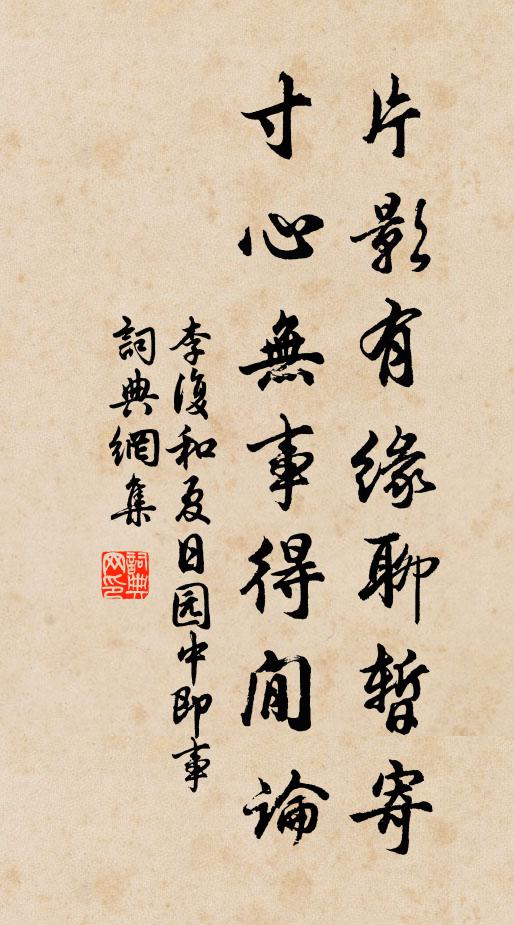 片影有缘聊暫寄
寸心無事得閒論
李復和夏日园中即事
詞典網集
詞典网印